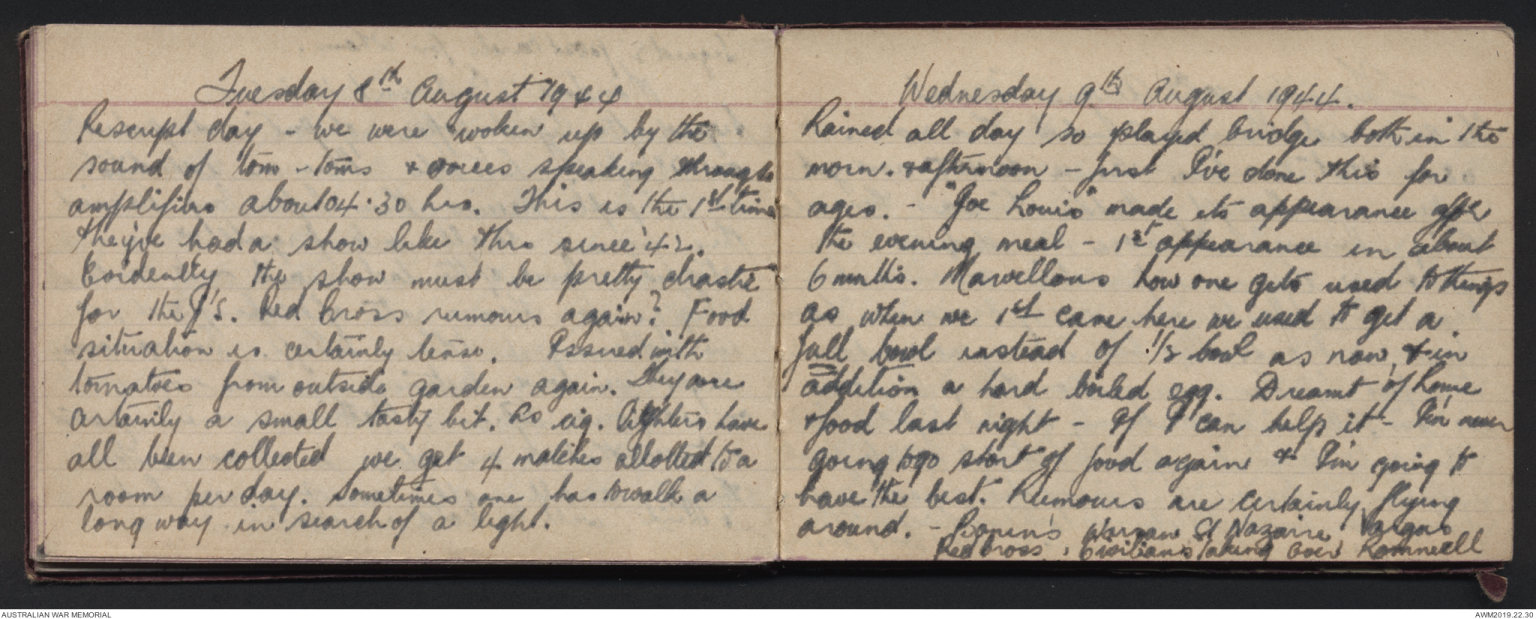 Tuesday 8th August 1944
Rescript day - we were woken up by the
sound of tom-toms & voices speaking through
amplifiers about 04.30 hrs. This is the 1st time
they've had a show like this since '42.
Evidently the show must be pretty drastic
for the J's. Red Cross rumours again? Food
situation is certainly tense. Issued with
tomatoes from outside garden again. They are
certainly a small tasty bit. As cig. lighters have
all been collected we get 4 matches allotted to a
room per day. Sometimes one has to walk a
long way in search of a light.
Wednesday 9th August 1944.
Rained all day so played bridge both in the
morn. & afternoon - first I've done this for
ages. - "Joe Louis" made its appearance after
the evening meal - 1st appearance in about
6 mnths. Marvellous how one gets used to things
as when we 1st came here we used to get a
full bowl instead of 1/2 bowl as now, & in
addition a hard boiled egg. Dreamt of home
& food last night - If I can help it - I'm never
going to go short of food again & I'm going to
have the best. Rumours are certainly flying
around. - Warsaw St Nazaire
Red Cross, Civilians taking over
AUSTRALIAN WAR MEMORIAL
AWM2019.22.30